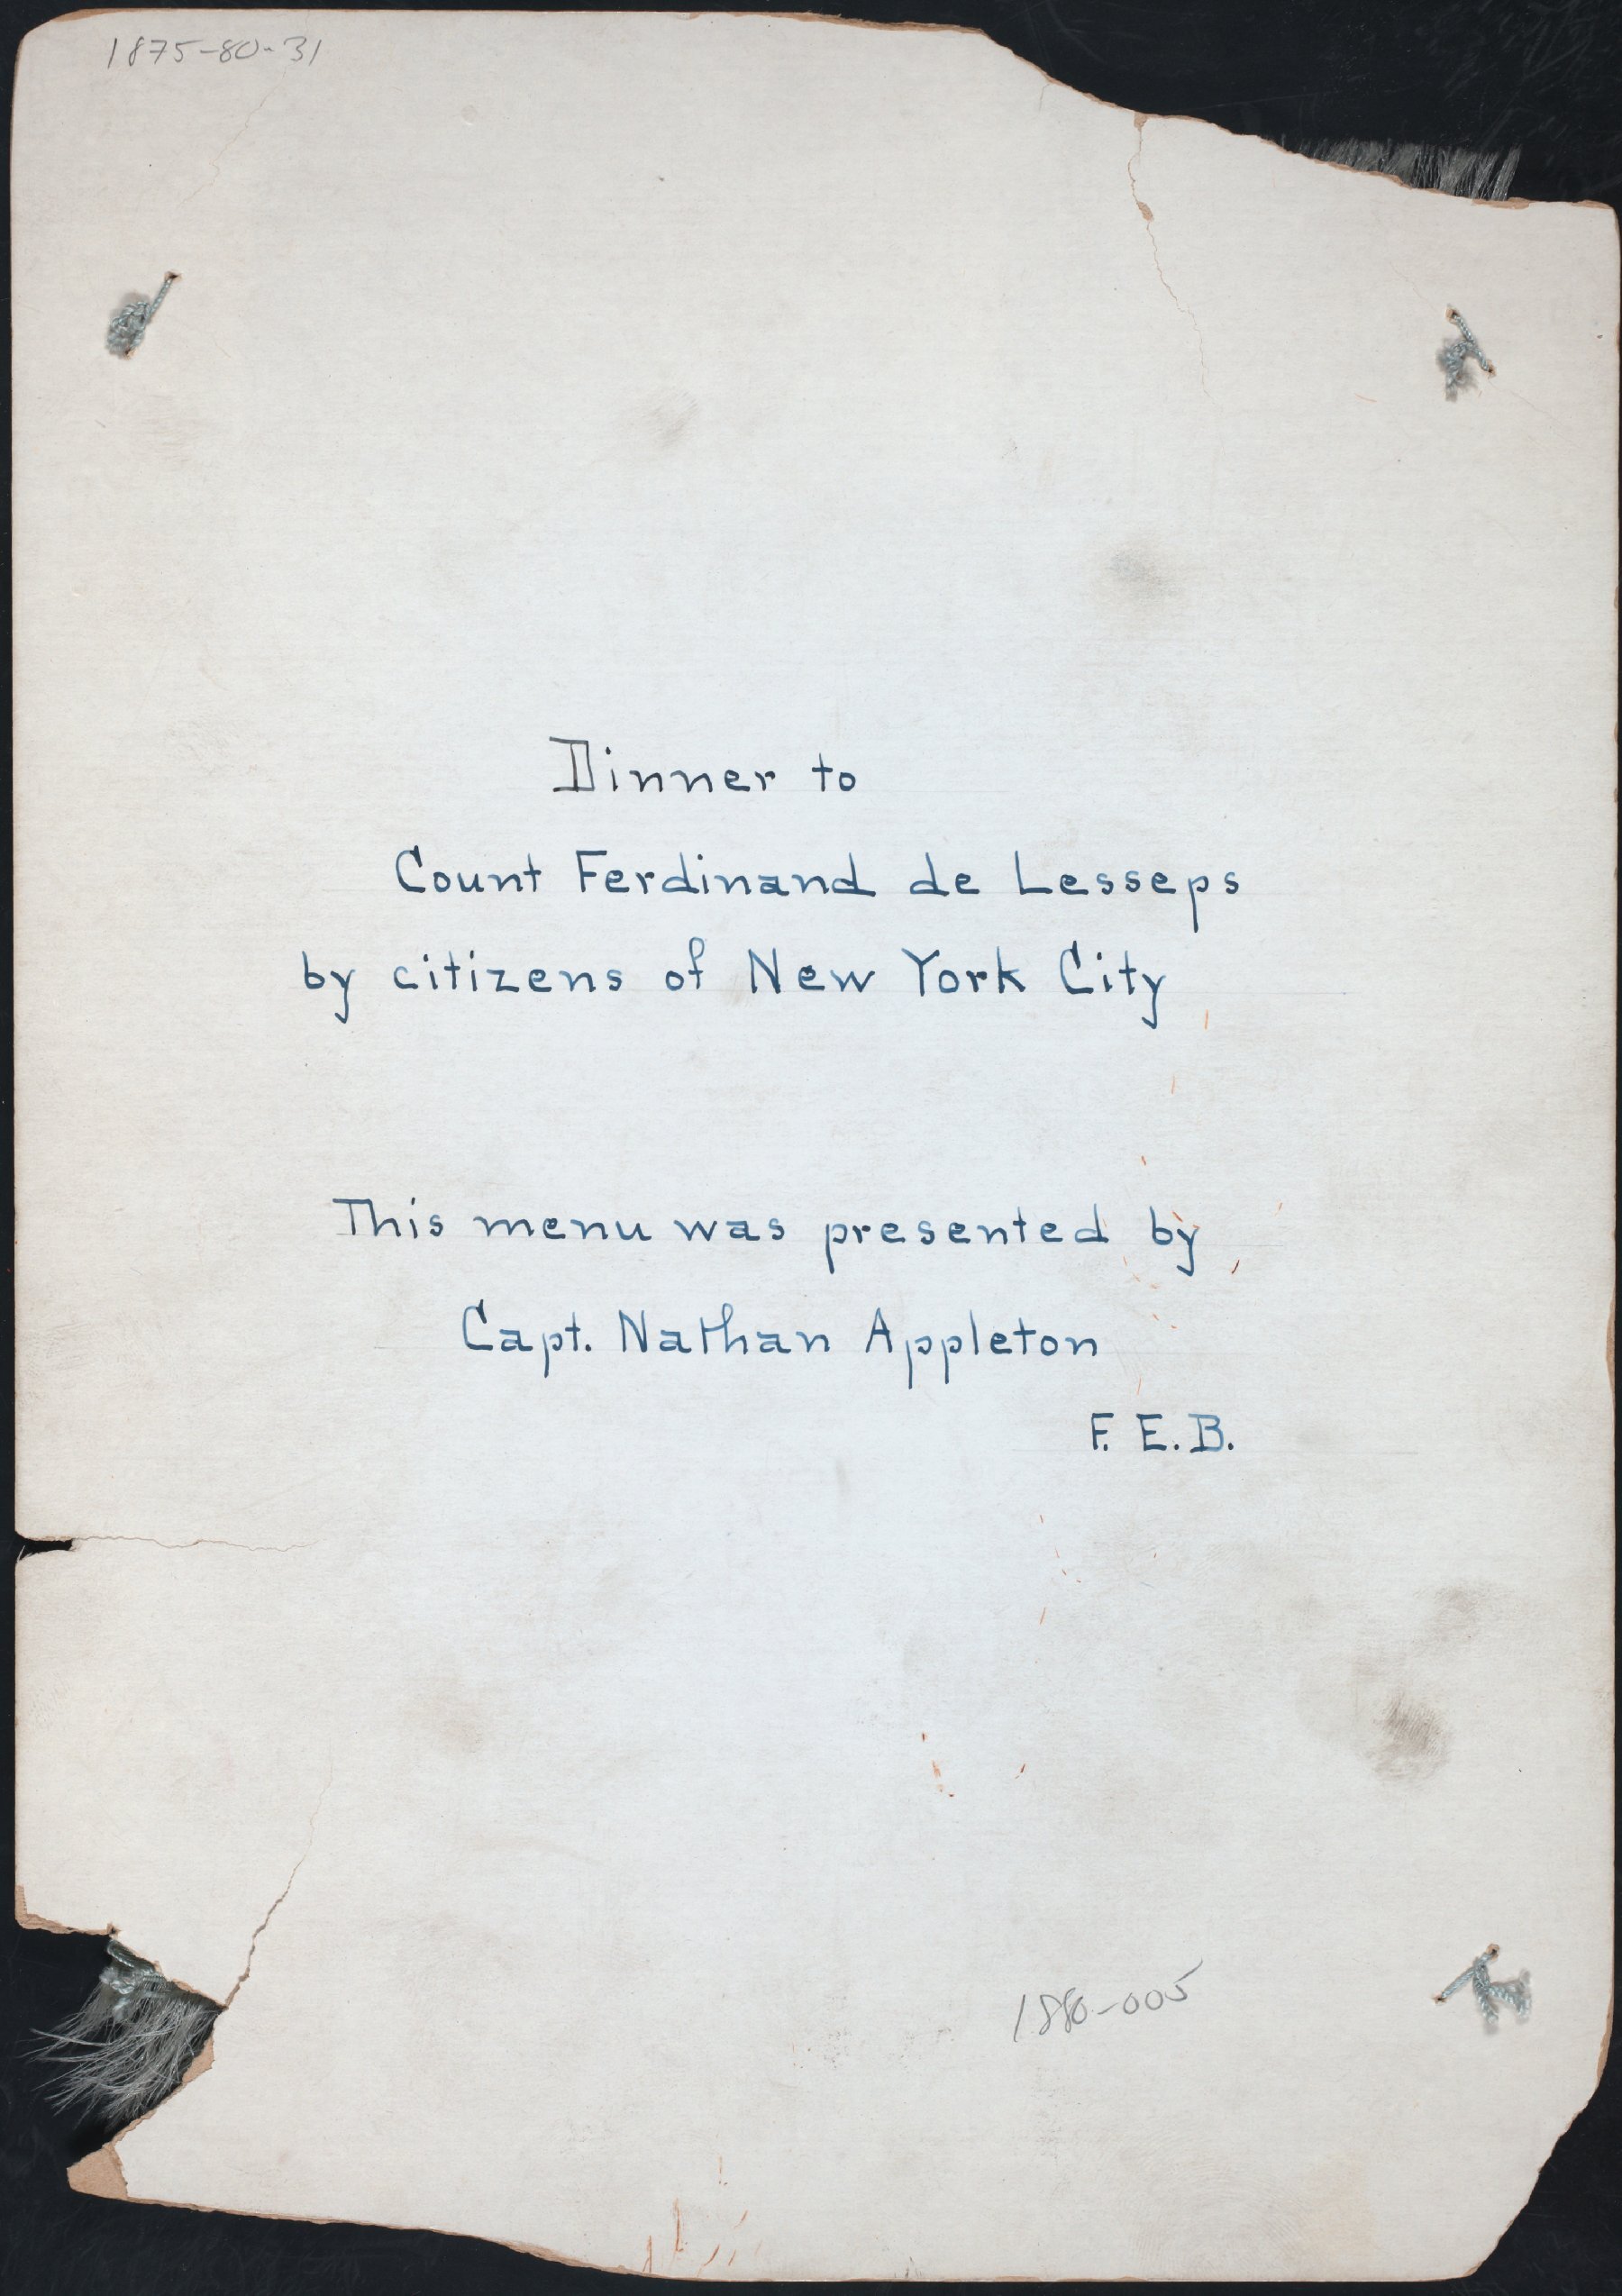 1875-80-31
Dinner to
Count Ferdinand de Lesseps
by citizens of New York City
This menu was presented by
Capt. Nathan Appleton
F. E. B.
1880-005